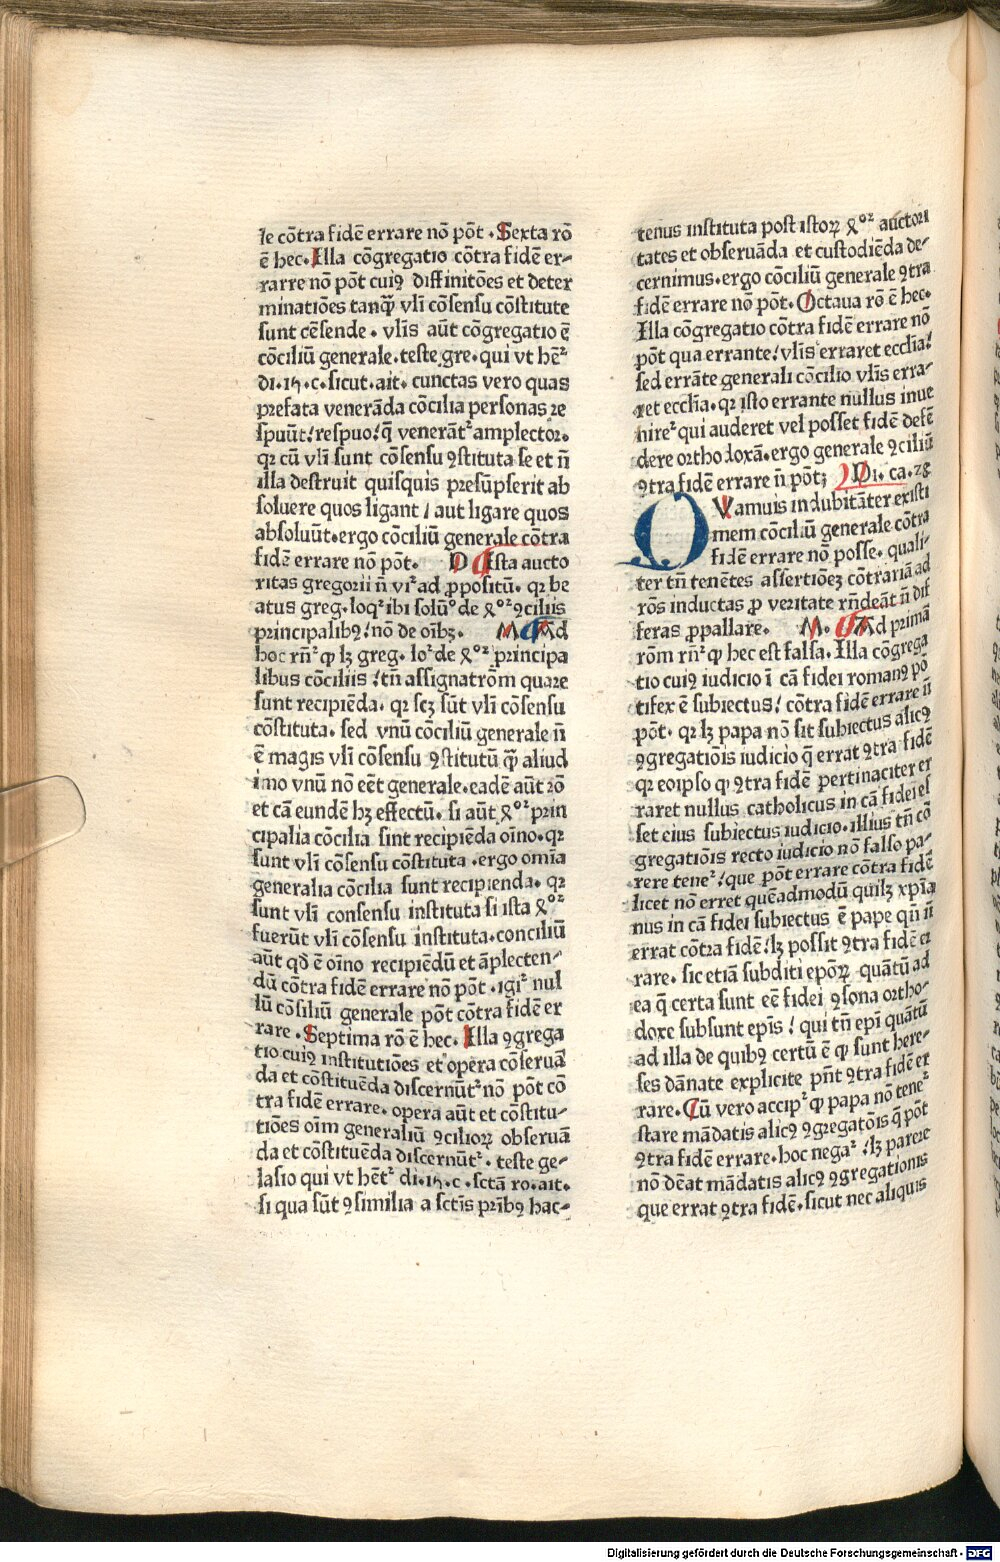 le cōtra fidē errare nō pōt . Sexta rō
ē hec. Illa cōgregatio cōtra fidē er-
rarre nō pōt cuiꝯ diffinitōes et deter
minatiōes tanqꝫ̄ vl̄i cōsensu cōstitute
sunt cēsende . vl̄is aūt cōgregatio ē
cōciliū generale.teste gre.qui vt hēᵗ²
di.15.c.sicut.ait. cunctas vero quas
prefata venerāda cōcilia personas re
spuūt/respuo/q̄ venerātᵗ² amplector.
qꝛ cū vl̄i sunt cōsensu ꝯstituta se et n̄
illa destruit quisquis presūpserit ab
soluere quos ligant / aut ligare quos
absoluūt.ergo cōciliū generale cōtra
fidē errare nō pōt. D Ista aucto
ritas gregorii n̄ viᵗ² ad ꝓpositū. qꝛ be
atus greg.loqᵗ² ibi solū° de 4°ᵗ² ꝯciliis
principalibꝯ/nō de oībꝫ. M Ad
hoc rn̄ᵗ² ꝙ lꝫ greg. loᵗ² de 4°ᵗ² principa
libus cōciliis/tn̄ assignatrōm quare
sunt recipiēda. qꝛ scꝫ sūt vl̄i cōsensu
cōstituta. sed vnū cōciliū generale n̄
ē magis vl̄i cōsensu ꝯstitutū qꝫ̄ aliud
imo vnū nō eēt generale.eadē aūt rō
et cā eundē hꝫ effectū. si aūt 4°ᵗ² prin
cipalia cōcilia sint recipiēda oīno.qꝛ
sunt vl̄i cōsensu cōstituta .ergo omīa
generalia cōcilia sunt recipienda. qꝛ
sunt vl̄i consensu instituta si ista 4°ᵗ²
fuerūt vl̄i cōsensu instituta.conciliū
aūt qđ ē oīno recipiēdū et āplecten-
dū cōtra fidē errare nō pōt .igiᵗ² nul
lū cōsiliū generale pōt cōtra fidē er
rare . Septima rō ē hec. Illa ꝯgrega
tio cuiꝯ institutiōes et opera cōseruā
da et cōstituēda discernūtᵗ² nō pōt cō
tra fidē errare. opera aūt et cōstitu-
tiōes oīm generaliū ꝯcilioꝝ obseruā
da et cōstituēda discernūtᵗ². teste ge-
lasio qui vt hētᵗ² di.15.c.sctā ro.ait.
si qua sūt ꝯsimilia a sctīs pr̄ibꝯ hac-
tenus instituta post istoꝝ 4°ᵗ² auctori
tates et obseruāda et custodiēda de-
cernimus.ergo cōciliū generale ꝯtra
fidē errare nō pōt. Octaua rō ē hec.
Illa cōgregatio cōtra fidē errare nō
pōt qua errante/vl̄is erraret eccl̄ia/
sed errāte generali cōcilio vl̄is erra-
ret eccl̄ia.qꝛ isto errante nullus inue
nireᵗ² qui auderet vel posset fidē defē
dere orthodoxā.ergo generale ꝯciliū
ꝯtra fidē errare n̄ pōtꝫ Di. ca. 28
QVamuis indubitāter existi
mem cōciliū generale cōtra
fidē errare nō posse. quali-
ter tn̄ tenētes assertiōeꝫ cōtrariā ad
rōs inductas ꝓ veritate rn̄deāt n̄ dif
feras ꝓpallare. M. Ad primā
rōm rn̄ᵗ² ꝙ hec est falsa. Illa cōgrega
tio cuiꝯ iudicio ī cā fidei romanꝯ pō
tifex ē subiectus/ cōtra fidē errare n̄
pōt. qꝛ lꝫ papa nō sit subiectus alicꝯ
ꝯgregatiōis iudicio q̄ errat ꝯtra fidē
qꝛ eoipso ꝙ ꝯtra fidē pertinaciter er
raret nullus catholicus in cā fidei es
set eius subiectus iudicio.illius tn̄ cō
gregatiōis recto iudicio nō falso pa-
rere teneᵗ²/que pōt errare cōtra fidē
licet nō erret quēadmodū quilꝫ xp̄ia
nus in cā fidei subiectus ē pape qn̄ n̄
errat cōtra fidē/lꝫ possit ꝯtra fidē er
rare. sic etiā subditi epōꝝ quātū ad
ea q̄ certa sunt eē fidei ꝯsona ortho-
doxe subsunt ep̄is / qui tn̄ ep̄i quātū
ad illa de quibꝯ certū ē ꝙ sunt here-
ses dānate explicite pn̄t ꝯtra fidē er
rare. Cū vero accipᵗ² ꝙ papa nō teneᵗ²
stare mādatis alicꝯ ꝯgregatōis q̄ pōt
ꝯtra fidē errare.hoc negaᵗ² /lꝫ parere
nō dēat mādatis alicꝯ ꝯgregationis
que errat ꝯtra fidē.sicut nec aliquis
Digitalisierung gefördert durch die Deutsche Forschungsgemeinschaft - DFG